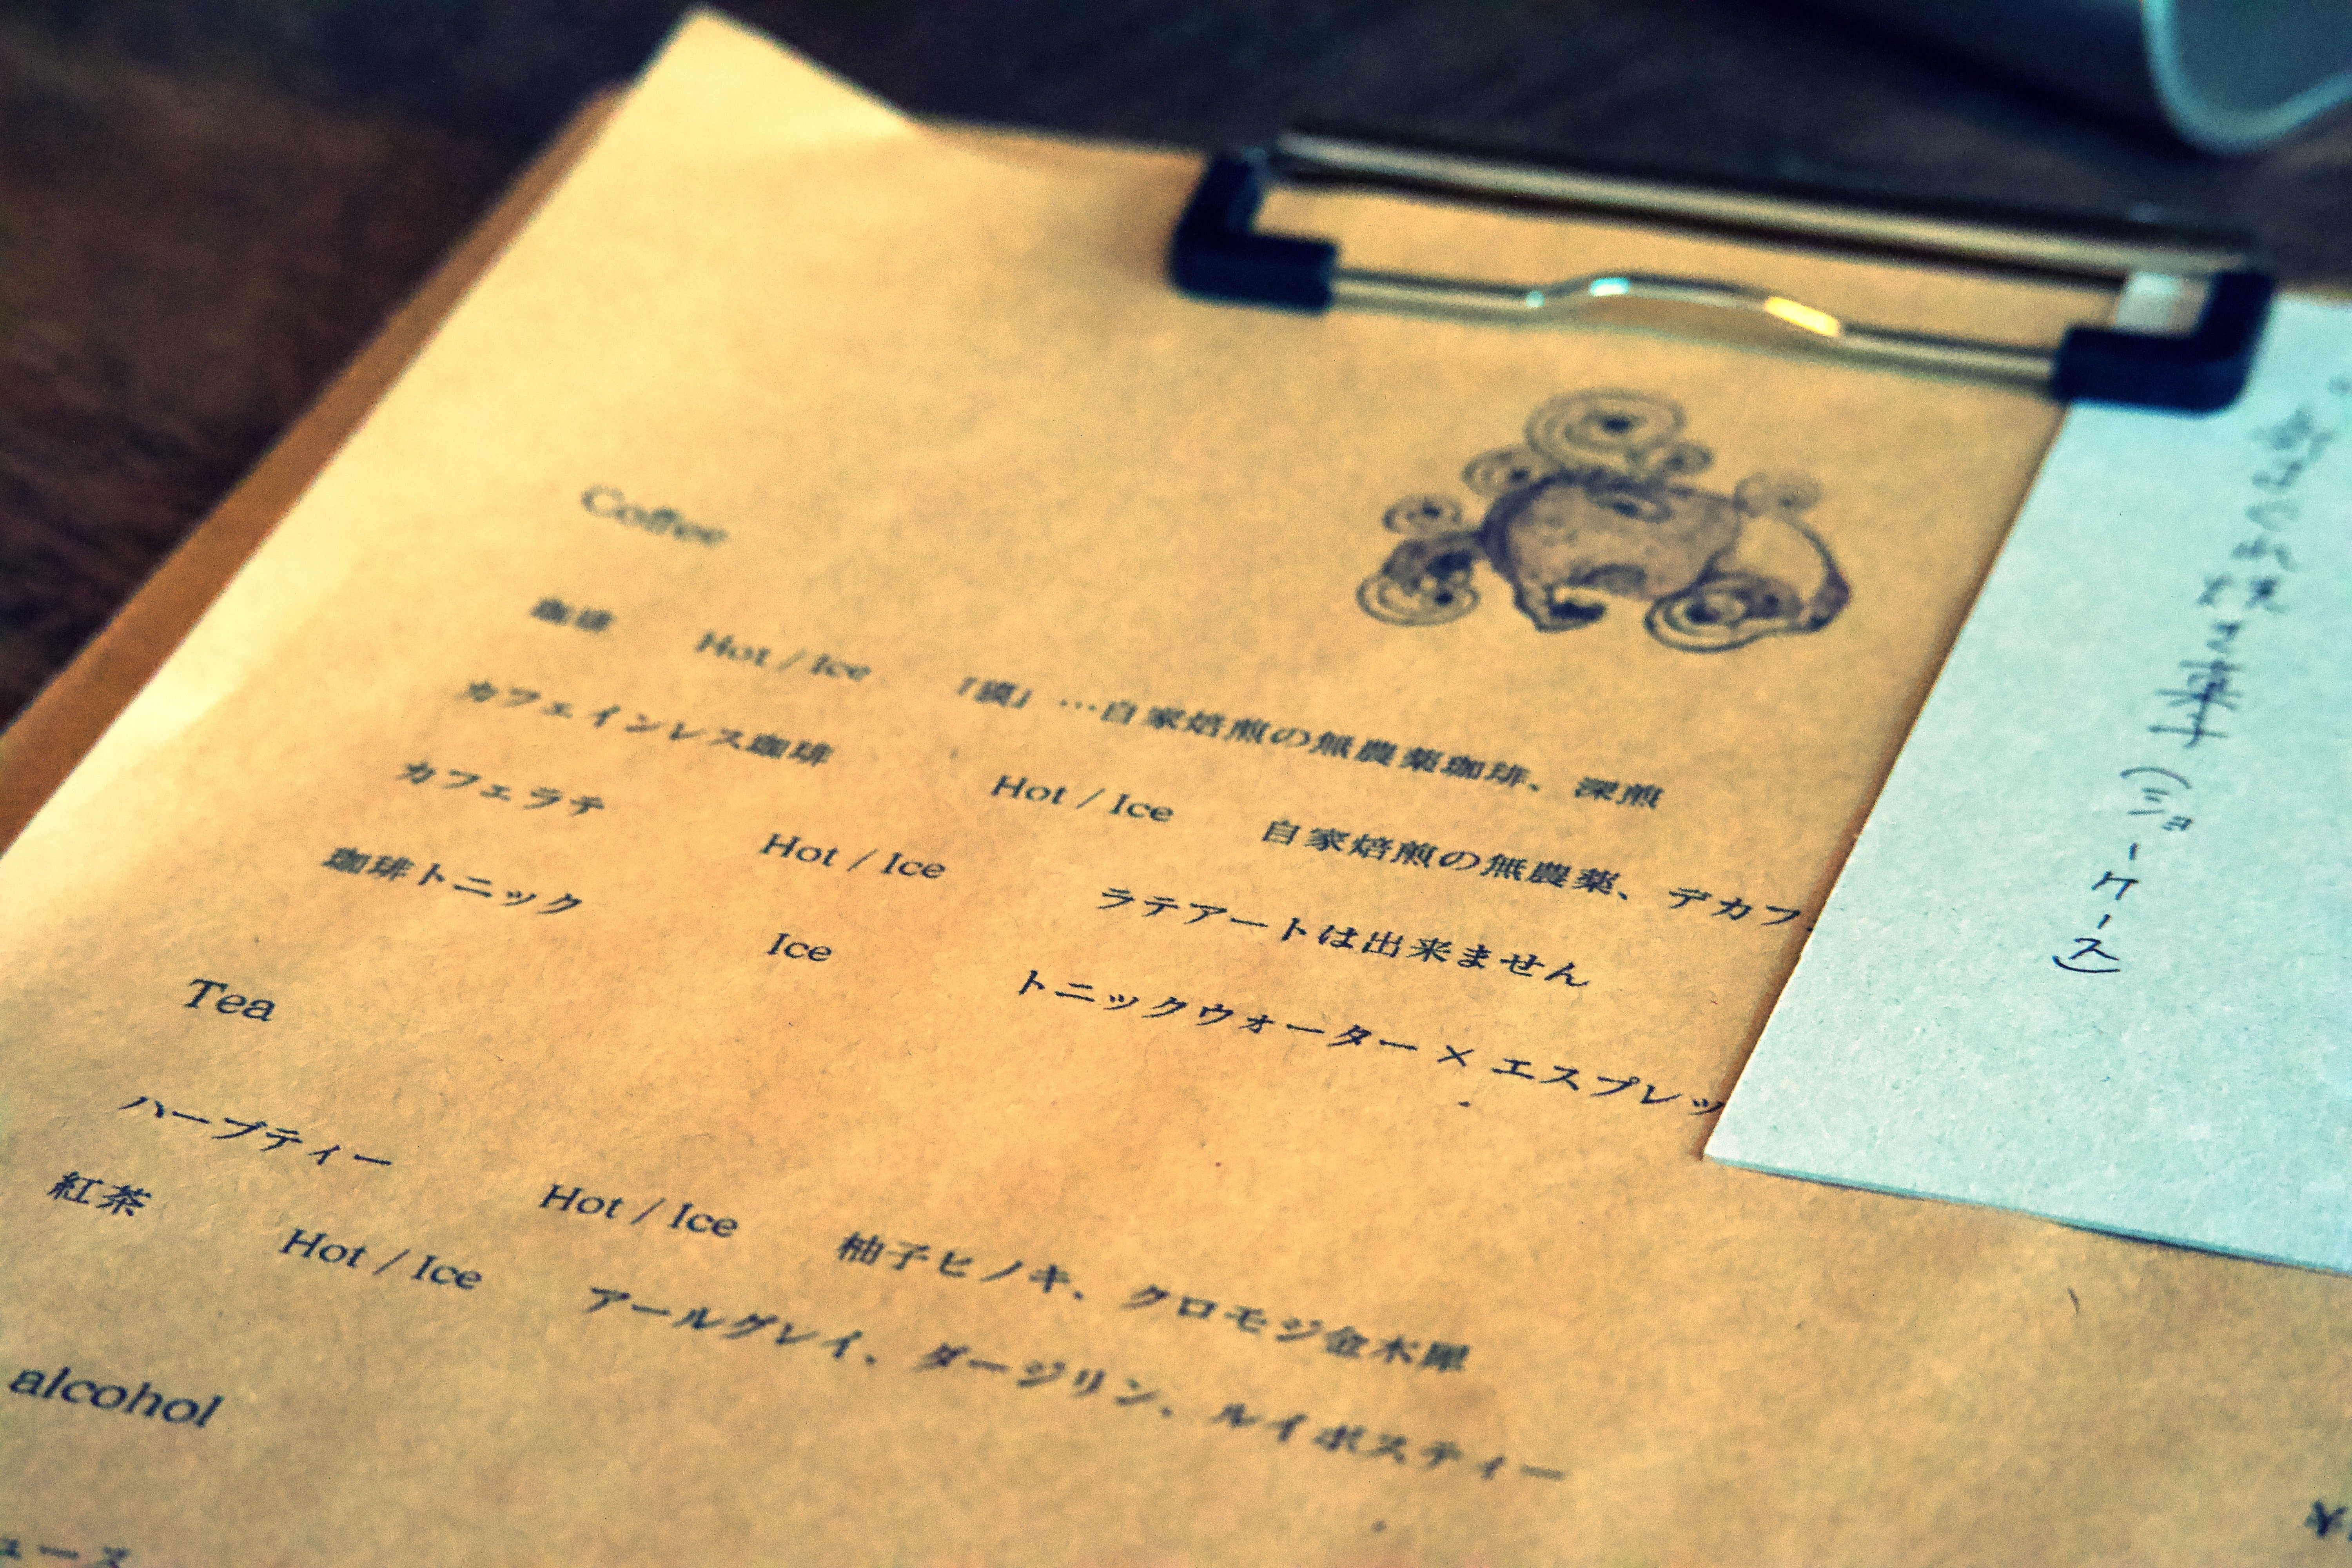 Coffee
珈琲 Hot / Ice 「獏」…自家焙煎の無農薬珈琲、深煎
カフェインレス珈琲 Hot / Ice 自家焙煎の無農薬、デカフ
カフェラテ Hot / Ice ラテアートは出来ません
珈琲トニック Ice トニックウォーター × エスプレッ
Tea
ハーブティー Hot / Ice 柚子ヒノキ、クロモジ金木犀
紅茶 Hot / Ice アールグレイ、ダージリン、ルイボスティー
alcohol
ュース
¥
(ショーケース)